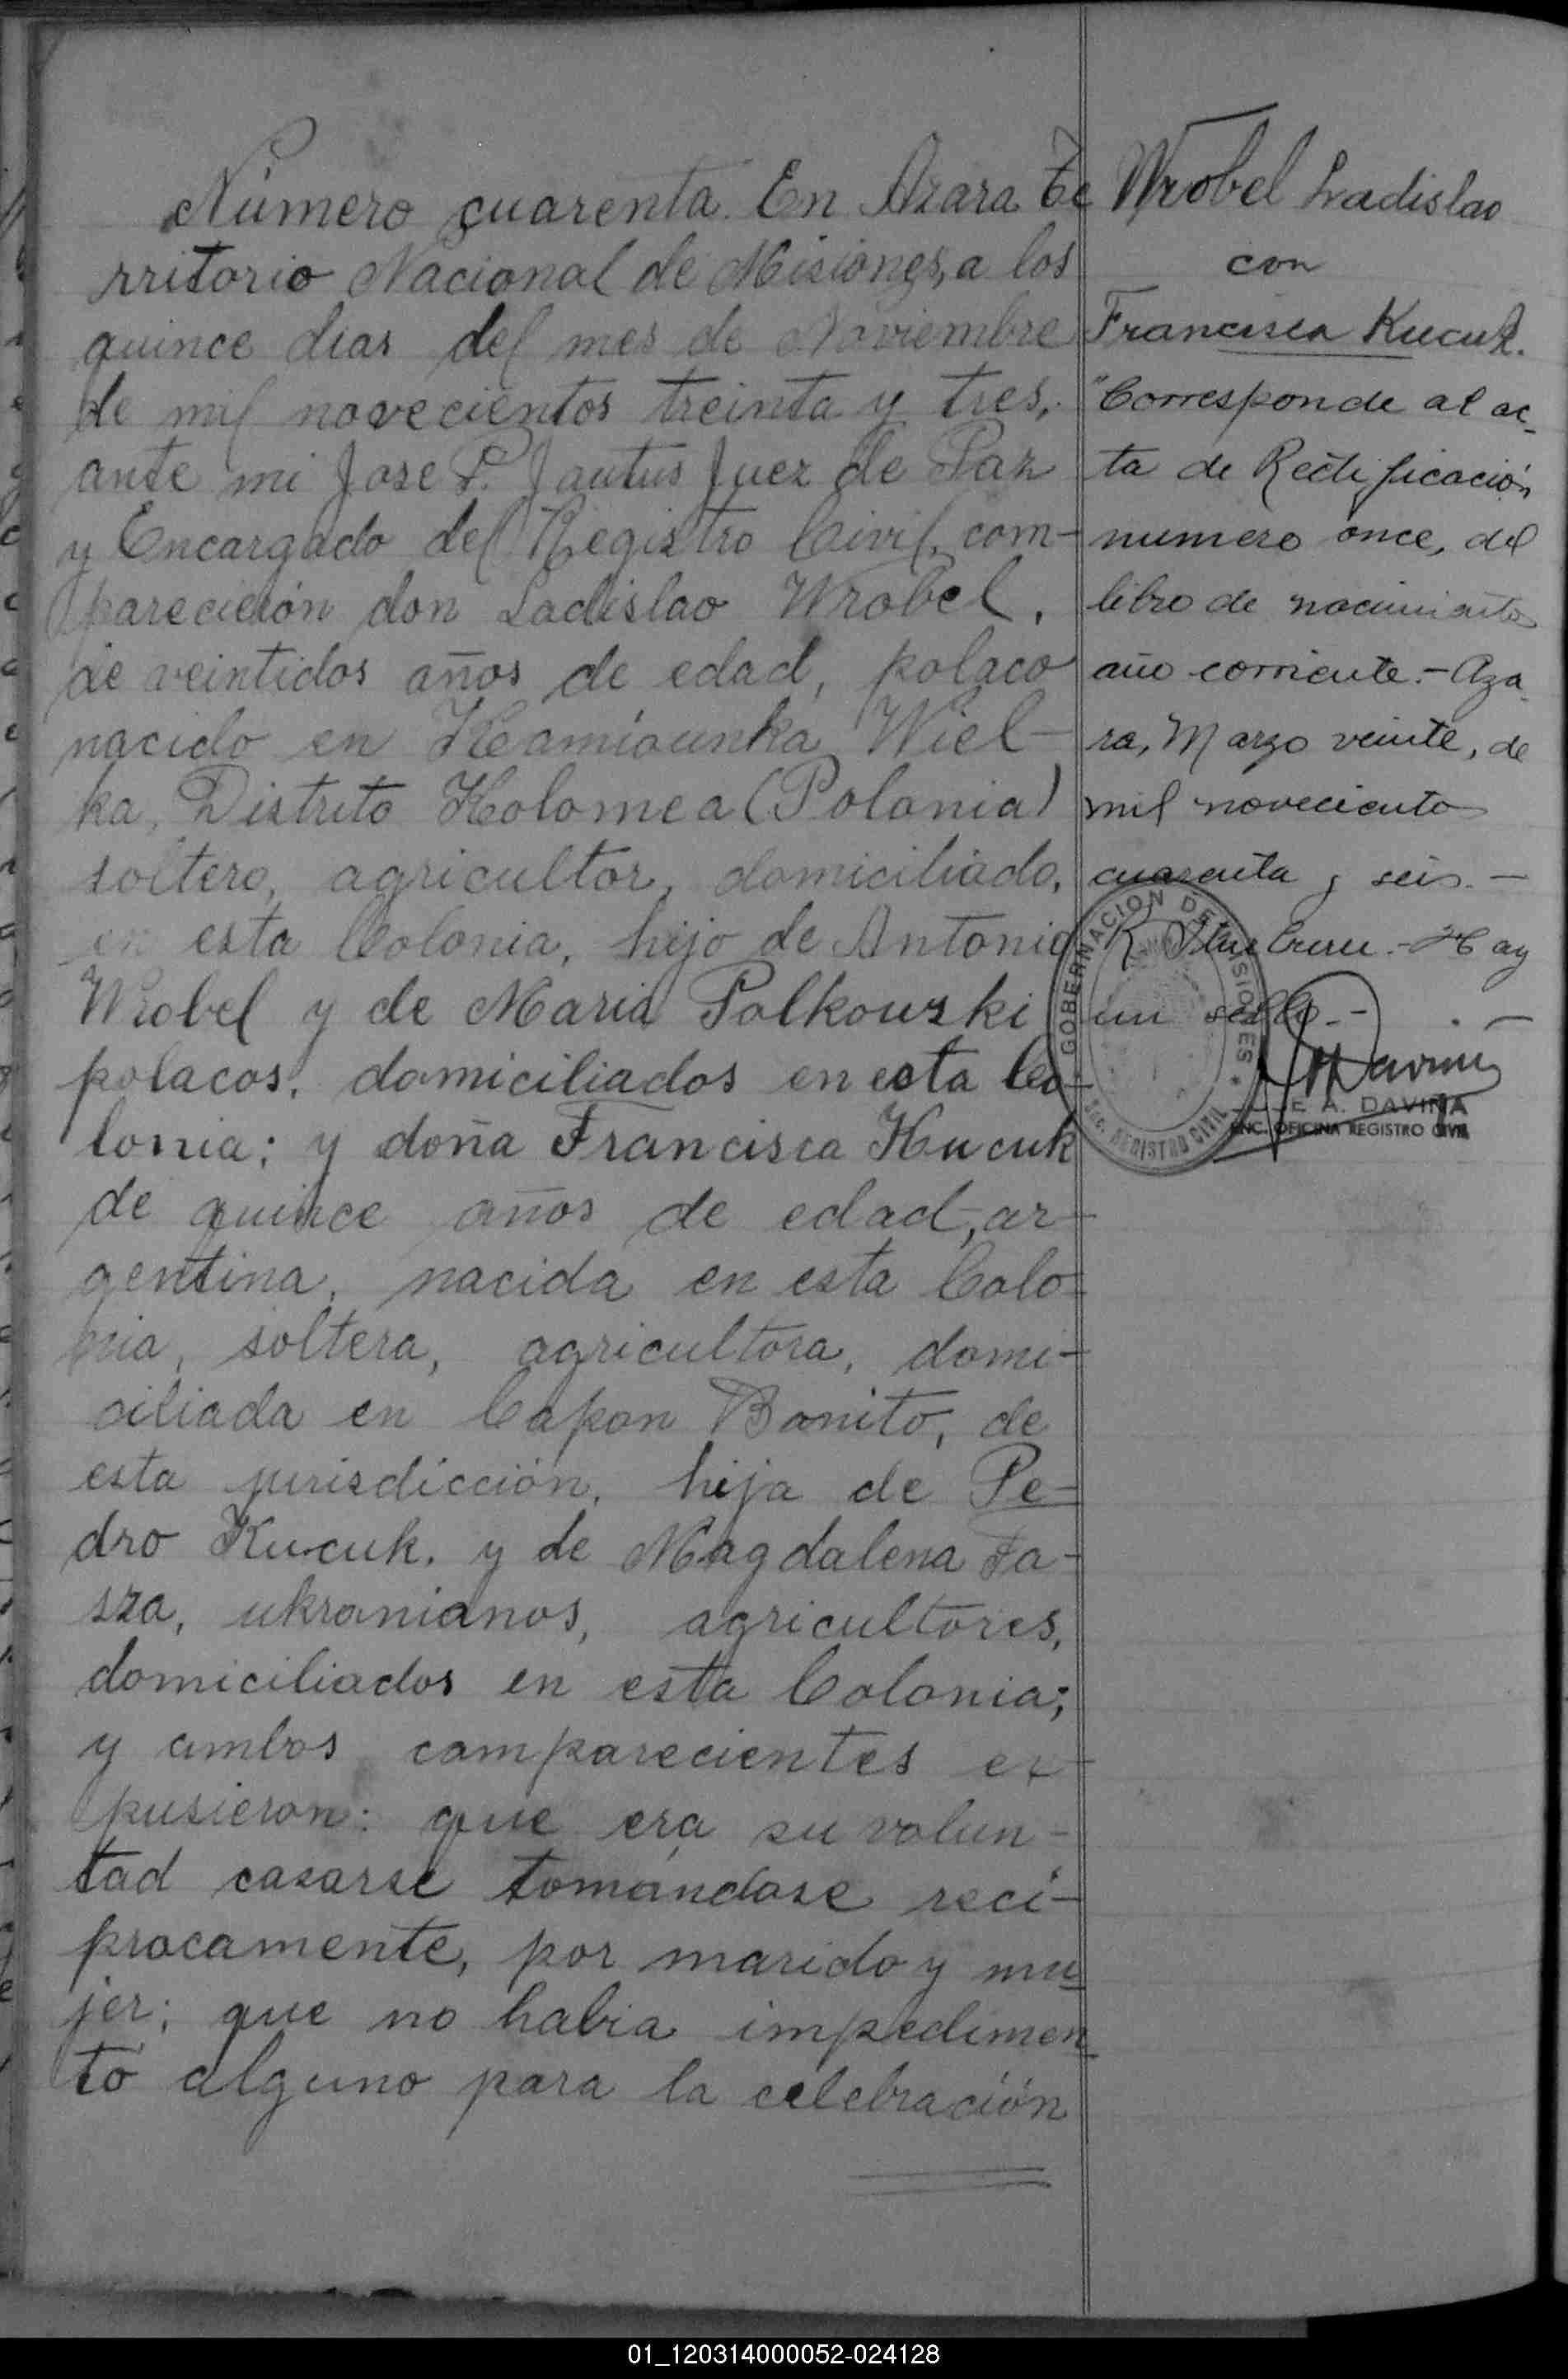 Número cuarenta. En Azara Te
rritorio Nacional de Misiones, a los
quince dias del mes de Noviembre
de mil novecientos treinta y tres,
ante mi Jose P. Jautus Juez de Paz
y Encargado del Registro Civil, com-
parecieron don Ladislao Wrobel,
de veintidos años de edad, polaco
nacido en Kamiounka Wiel-
ka, Distrito Kolomea (Polonia)
soltero, agricultor, domiciliado,
en esta Colonia, hijo de Antonio
Wrobel y de Maria Polkowski
polacos, domiciliados en esta Co-
lonia; y doña Francisca Kucuk
de quince años de edad, ar-
gentina, nacida en esta Colo-
nia, soltera, agricultora, domi-
ciliada en Capon Bonito, de
esta jurisdicción, hija de Pe-
dro Kucuk, y de Magdalena Fa-
sza, ukranianos, agricultores,
domiciliados en esta Colonia;
y ambos comparecientes ex-
pusieron: que era su volun-
tad casarse tomándose reci-
procamente, por marido y mu
jer; que no habia impedimen
to alguno para la celebración
Wrobel Ladislao
con
Francisca Kucuk.
"Corresponde al ac-
ta de Rectificación
numero once, del
libro de nacimientos
año corriente.- Aza
ra, Marzo veinte, de
mil novecientos
cuarenta y seis.-
Hay
un sello.-
GOBERNACION DE MISIONES
SEC. REGISTRO CIVIL
JOSE A. DAVIÑA
ENC. OFICINA REGISTRO CIVIL
01_120314000052-024128